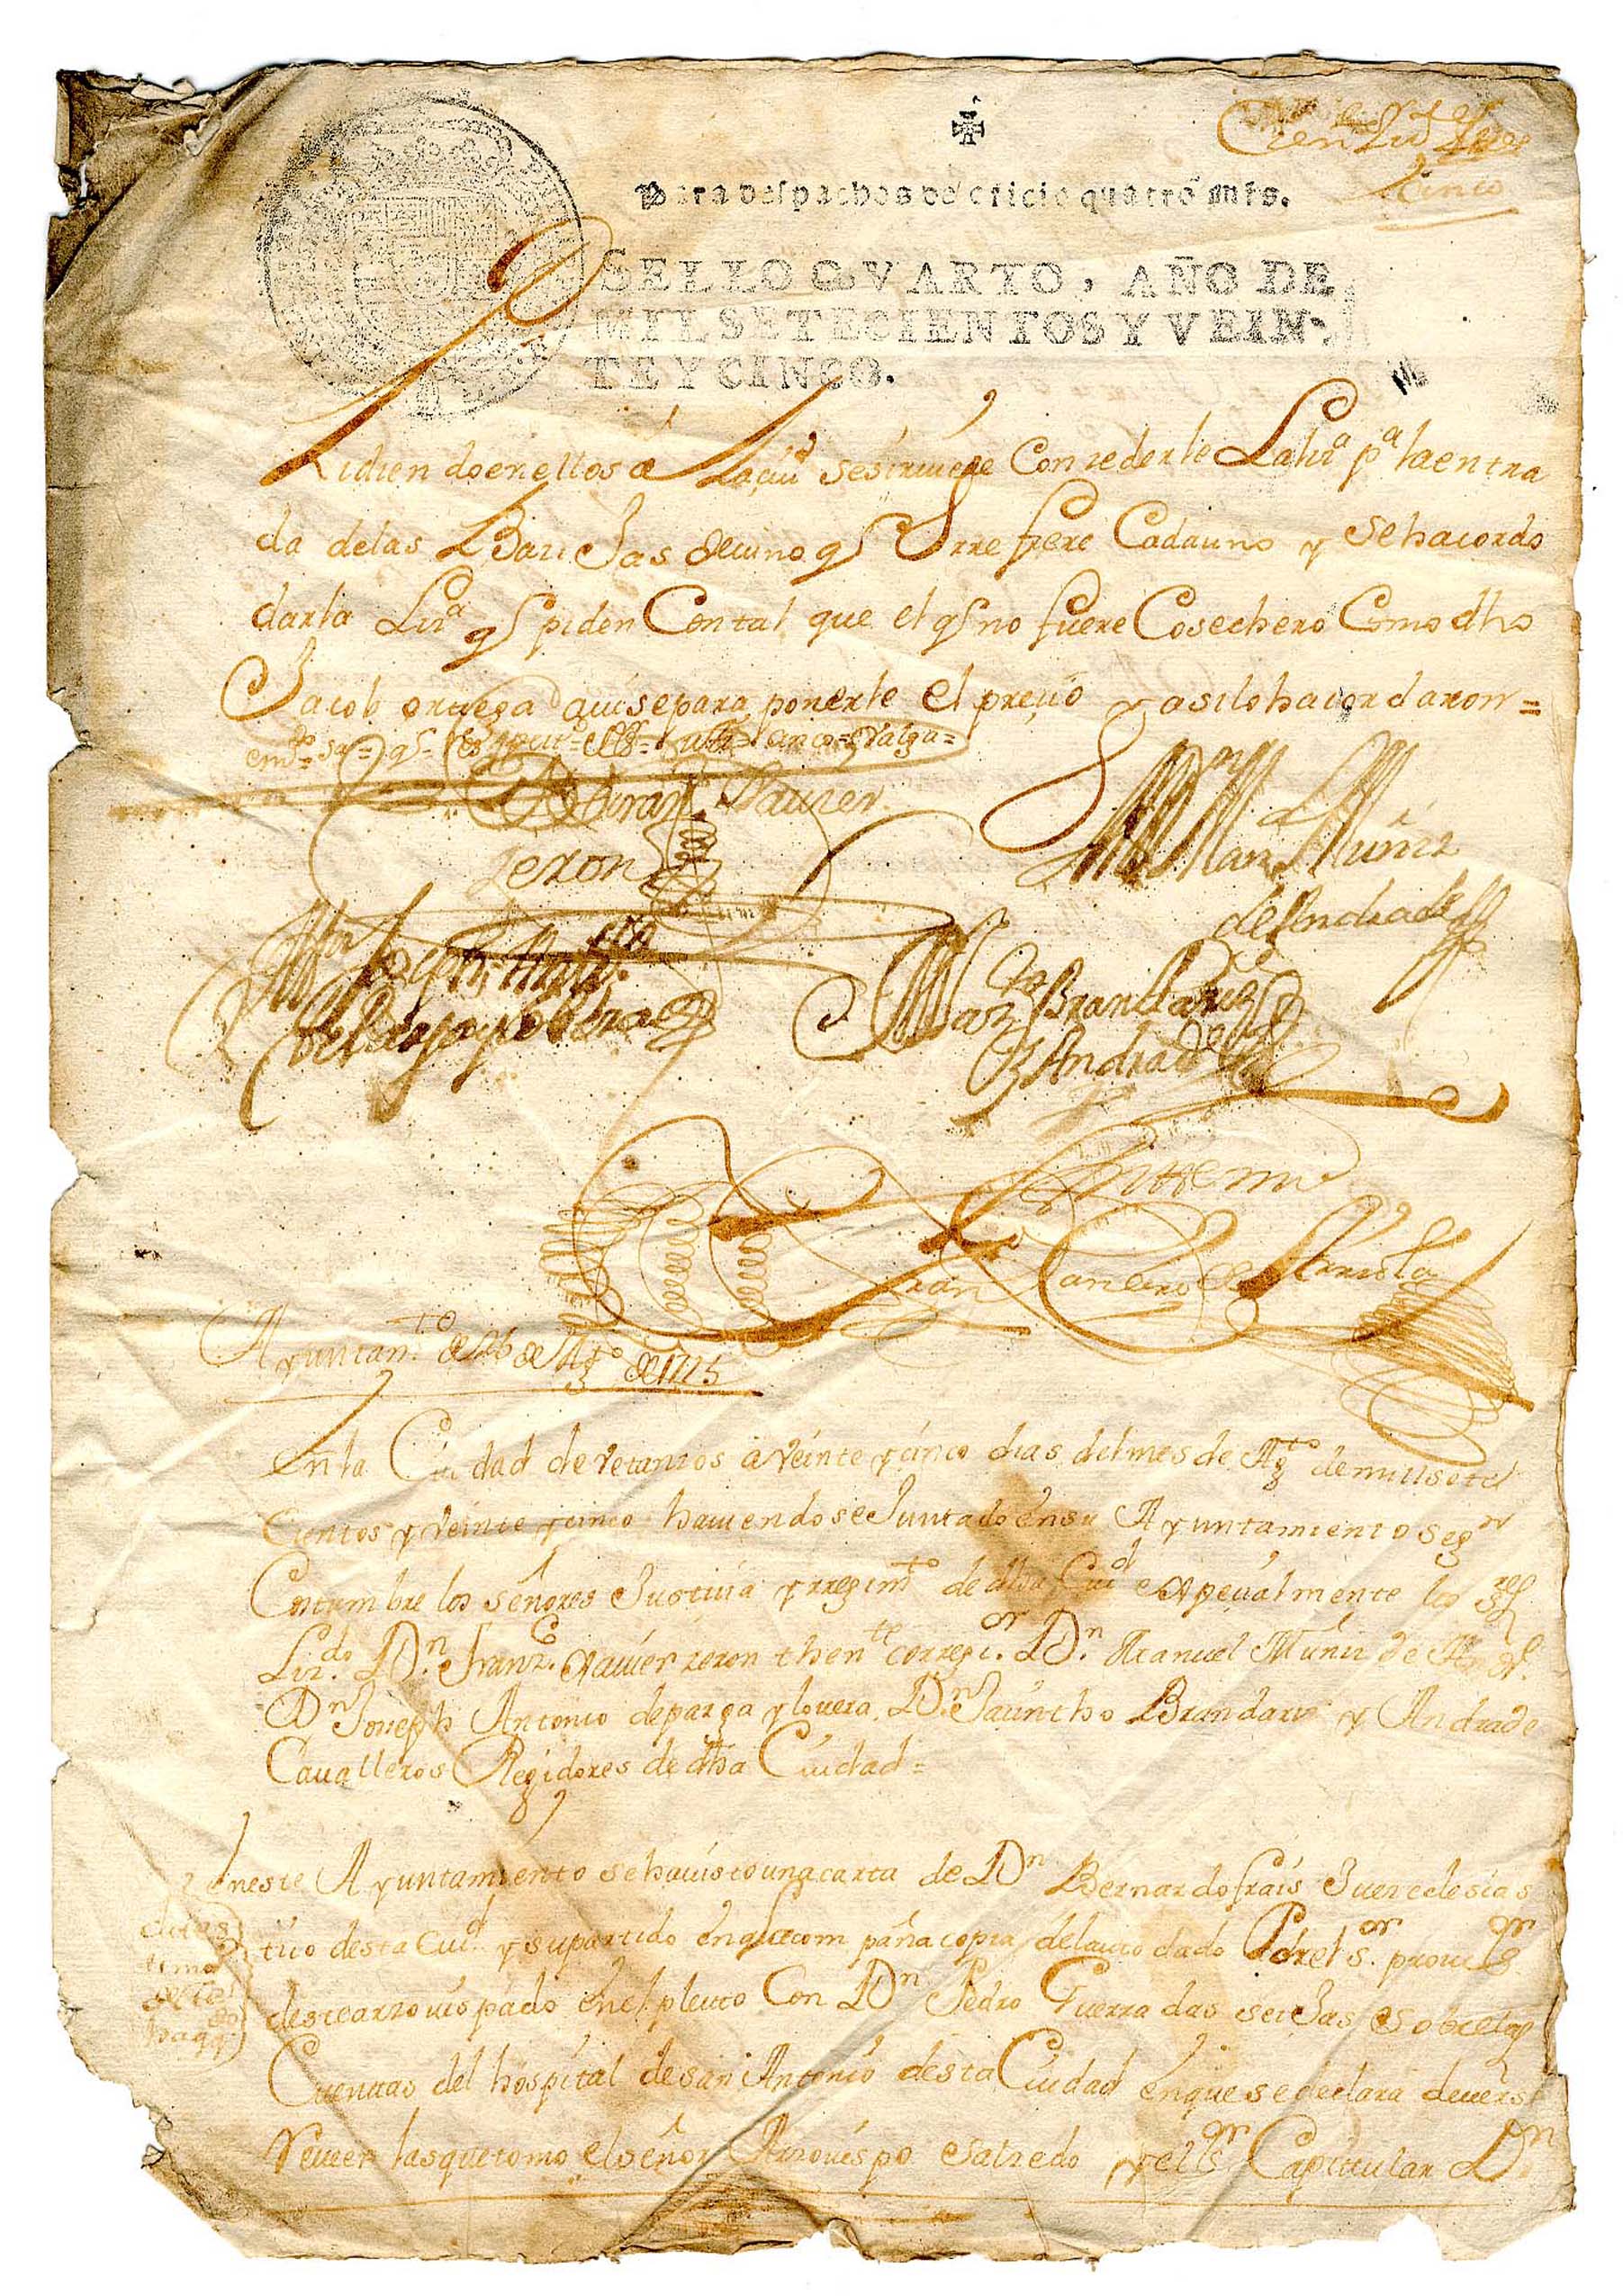 Para despachos de oficio quatro mrs.
SELLO QVARTO, AÑO DE
MIL SETECIENTOS Y VEIN-
TE Y CINCO.
Pidiendo en ellos a la ciud se sirviese Concederle La lizª pª la entra
da de las Barricas de vino q Cada uno y se ha acordo
darla Lizª q piden Con tal que el q no fuere Cosechero Como dho
Jacob ortega auise para ponerle el precio y asi lo hacordaron =
Xauier
zeron
Man Muñiz
de Andrade
Brandariz
y Andrade
Ante mi
Ayuntamto de 26 de Agto de 1725
En la Ciudad de vetanzos a veinte y cinco dias del mes de Agto de mill sete
cientos y veinte y cinco hauiendose Juntado en su Ayuntamiento segn
Costumbre los señores Justicia y rregimto de dha Ciud especialmente los sres
Lizdo Dn Franzco Xauier zeron thente correxor Dn Manuel Muñiz de Andde
Dn Joseph Antonio de parga y louera Dn Jacintho Brandariz y Andrade
Caualleros Regidores de dha Ciudad =
En este Ayuntamiento se ha uisto una carta de Dn Bernardo frais Juez eclesias
tico desta Ciud y su partido en que acompaña copia del auto dado Por el sor prouisor
deste arzouispado en el pleito Con Dn Pedro Guerra das seijas sobre las
Cuentas del hospital de san Antonio desta Ciudad en que se declara deuerse
Veueer las que tomo el señor Arzouispo Salzedo y el sor Capitular Dn